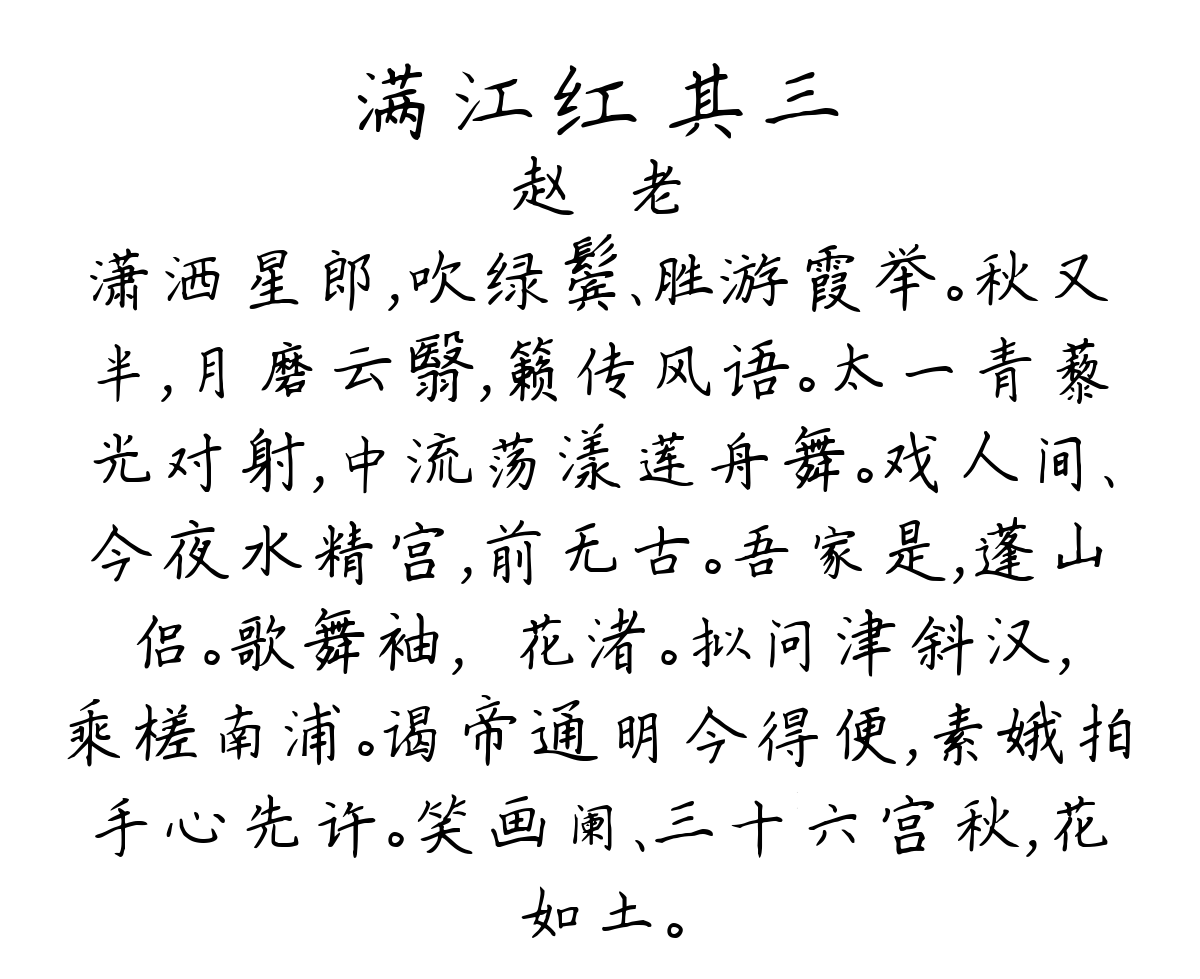 满江红其三
赵 老
潇洒星郎,吹绿鬓、胜游霞举。秋又
半,月磨云翳,籁传风语。太一青藜
光对射,中流荡漾莲舟舞。戏人间、
今夜水精宫,前无古。吾家是,蓬山
侣。歌舞袖, 花渚。拟问津斜汉,
乘槎南浦。谒帝通明今得便,素娥拍
手心先许。笑画阑、三十六宫秋,花
如土。